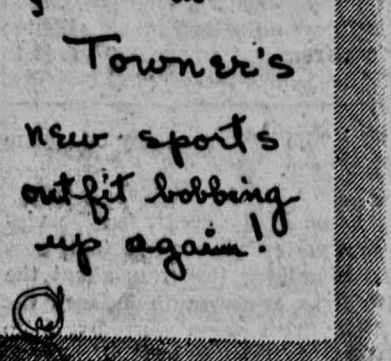 Towner's
new sports
outfit bobbing
up again!